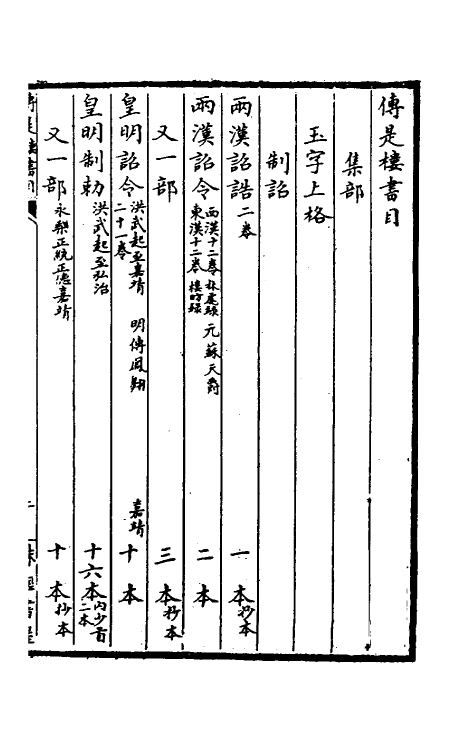 傳是樓書目
集部
玉字上格
制詔
兩漢詔誥二卷 一本抄本
兩漢詔令西漢十二卷林虙録東漢十二卷樓昉録 元蘇天爵 二本
又一部 三本抄本
皇明詔令洪武起至嘉靖二十一卷 明傅鳳翔 嘉靖 十本
皇明制勅洪武起至弘治 十六本内少首二本
又一部永樂正統正德嘉靖 十本抄本